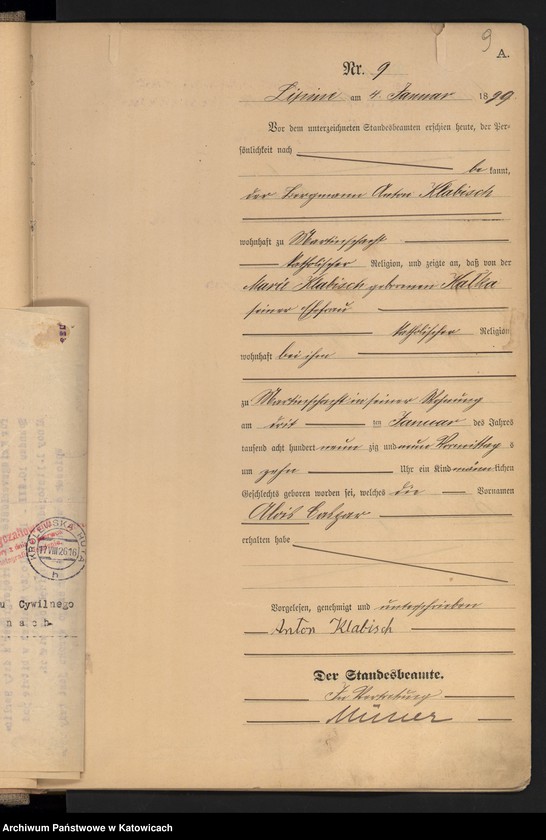 9
A.
Nr. 9
Lipine am 4. Januar 1899
Vor dem unterzeichneten Standesbeamten erschien heute, der Per-
sönlichkeit nach
be kannt,
der Bergmann Anton Klabisch
wohnhaft zu Martinschacht
katholischer Religion, und zeigte an, daß von der
Marie Klabisch geborenen Kalka
seiner Ehefrau
katholischer Religion
wohnhaft bei ihm
zu Martinschacht in seiner Wohnung
am drit ten Januar des Jahres
tausend acht hundert neun zig und neun Vormittag s
um zehn Uhr ein Kind männ lichen
Geschlechts geboren worden sei, welches die Vornamen
Alois Caspar
erhalten habe
Vorgelesen, genehmigt und unterschrieben
Anton Klabisch
Der Standesbeamte.
In Vertretung
KRÓLEWSKA HUTA
17 VIII 26 16
b
u Cywilnego
nach
Archiwum Państwowe w Katowicach